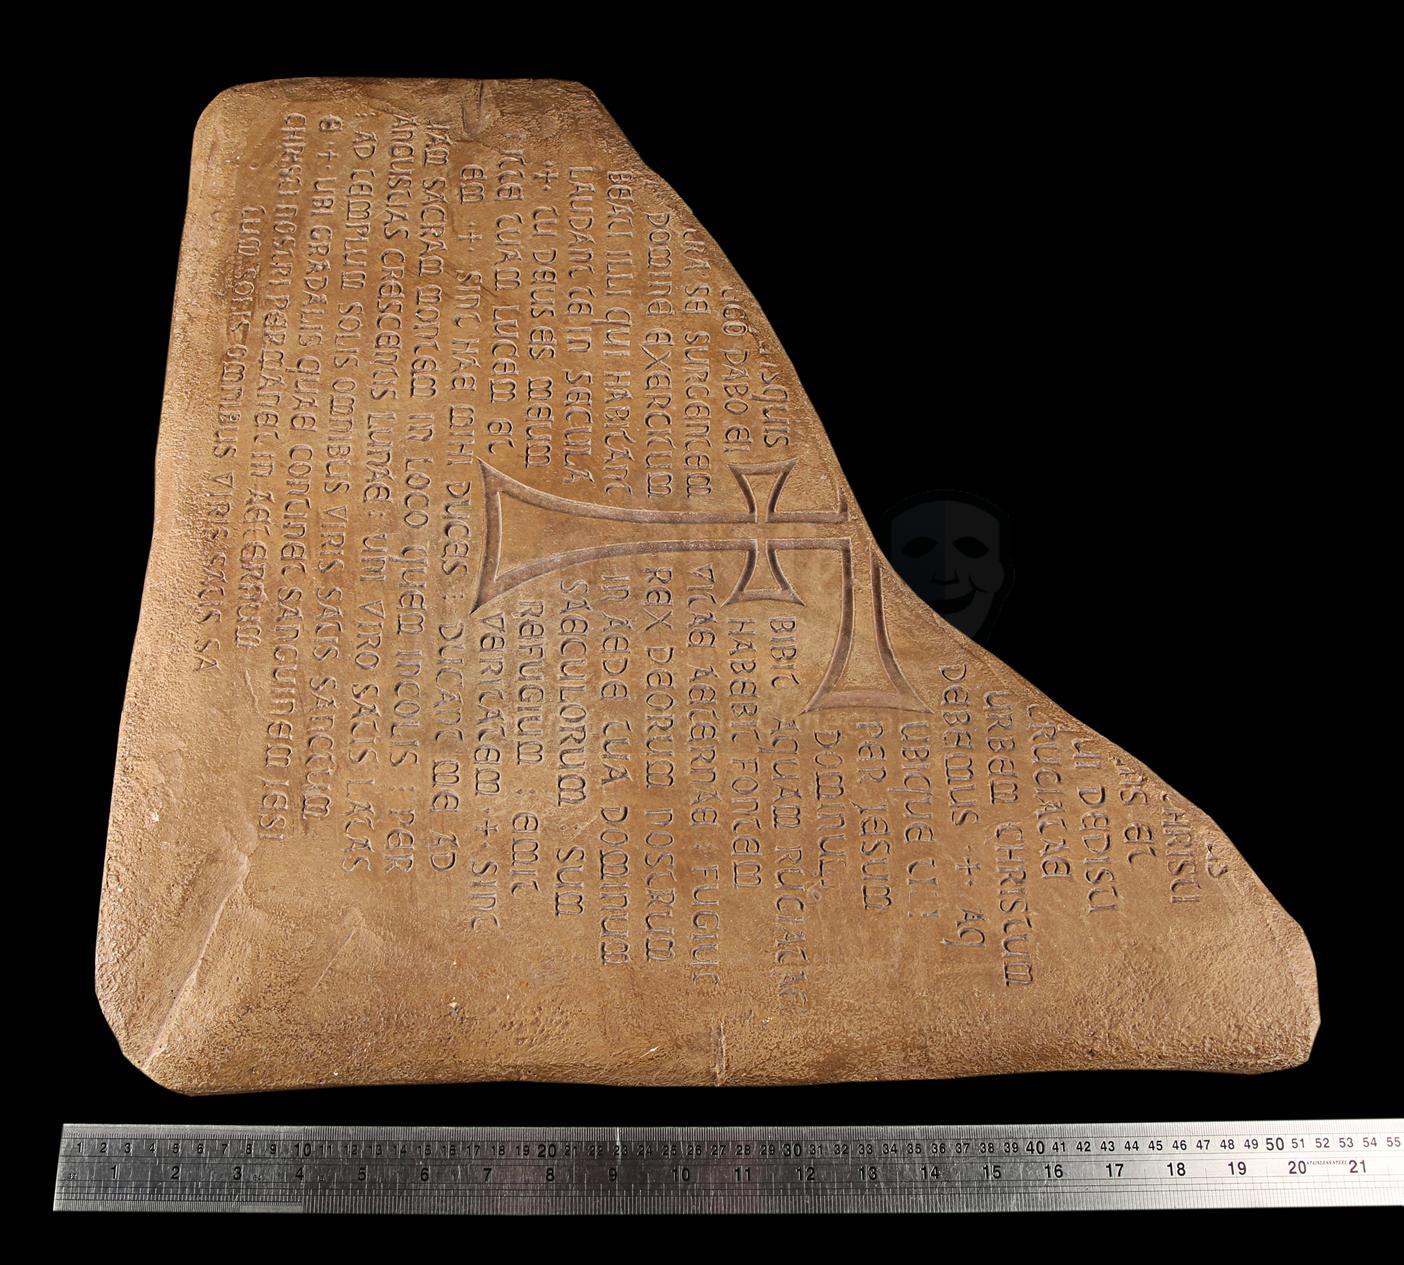 CHRISTI
ET
DEDISTI
CRUCIATAE
URBEM CHRISTUM
DEBEMUS + AQ
UBIQUE TI :
PER JESUM
DOMINUL
BIBIT AQUAM
DABO EI HABEBIT FONTEM
SE SURGENTEM VITAE AETERNAE : FUGIUT
DOMINE EXERCITUM REX DEORUM NOSTRUM
BEATI ILLI QUI HABITANT IN AEDE TUA DOMINUM
LAUDANT TE IN SECULA SAECULORUM : SUM
+ TU DEUS ES MEUM REFUGIUM : EMIT
ITTE TUAM LUCEM ET VERITATEM + SINT
EM + SINT HAE MIHI DUCES : DUCANT ME AD
IAM SACRAM MONTEM IN LOCO QUEM INCOLIS : PER
ANGUSTIAS CRESCENTIS LUNAE : UNI VIRO SATIS LATAS
: AD TEMPLUM SOLIS OMNIBUS VIRIS SATIS SANCTUM
E + UBI GRADALIS QUAE CONTINET SANGUINEM JESI
CHRISTI NOSTRI PERMANET IN AETERNUM
TUM SOLIS OMNIBUS VIRIS SATIS SA
1 2 3 4 5 6 7 8 9 10 11 12 13 14 15 16 17 18 19 20 21 22 23 24 25 26 27 28 29 30 31 32 33 34 35 36 37 38 39 40 41 42 43 44 45 46 47 48 49 50 51 52 53 54 55
1 2 3 4 5 6 7 8 9 10 11 12 13 14 15 16 17 18 19 20 STAINLESS STEEL 21